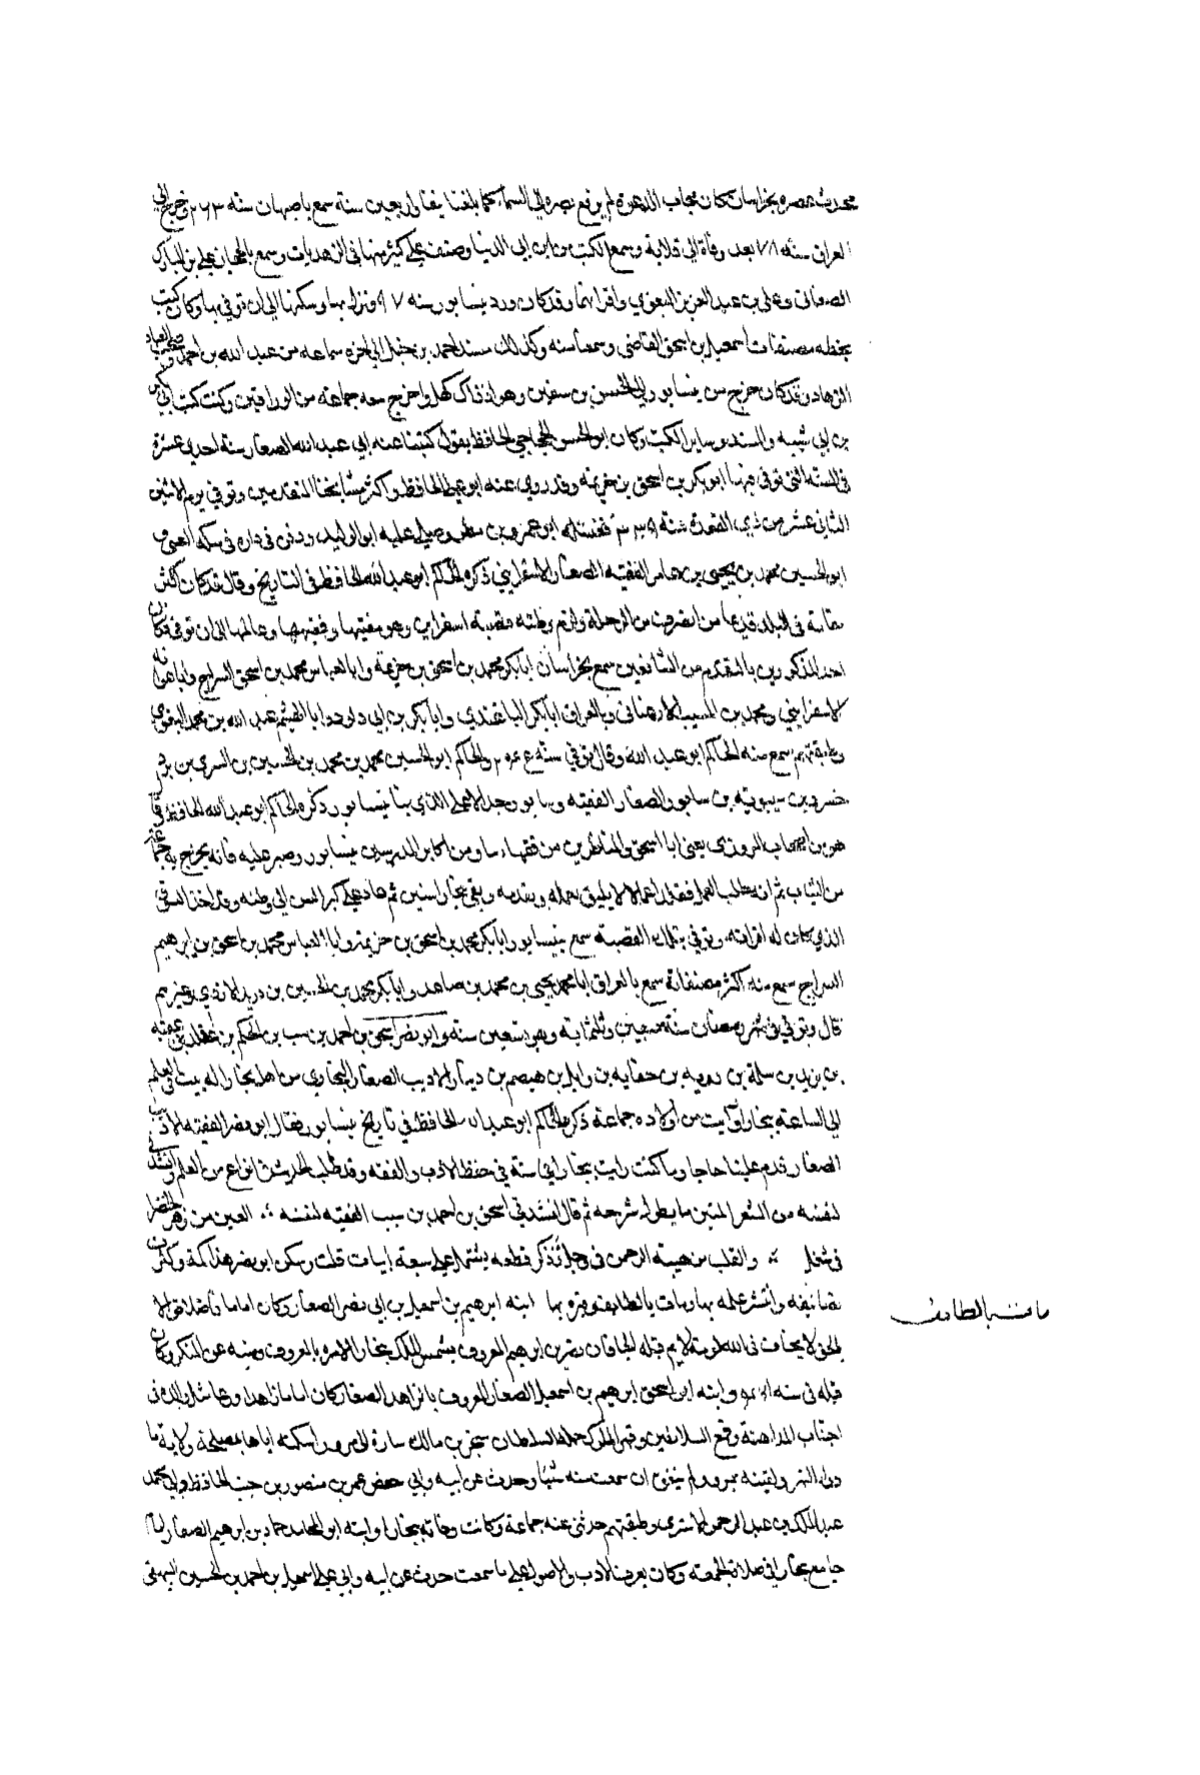 محدث عصره بخراسان كان مجاب الدعوة لم يرفع بصره الى السماء كما بلغنا نيفا واربعين سنة سمع باصبهان سنه ٢٦٣ وخرج الى
العراق سنه ٧٨ بعد وفاة ابي قلابة وسمع الكتب من ابن ابي الدنيا وصنف على كثير منها في الزهديات وسمع بالحجاز علي بن المبارك
الصغاني وعلى بن عبد العزيز البغوي واقرانهما وقد كان ورد نيسابور سنه ٩٧ ونزل بها وسكنها الى ان توفي بها وكان كتب
بخطه مصنفات اسمعيل بن اسحق القاضي وسمعها منه وكذلك مسند احمد بن حنبل الى اخره سماعه من عبد الله بن احمد وصحب العباد
الزهاد وقد كان خرج من نيسابور الى الحسن بن سفين وهو اذ ذاك كهل واخرج معه جماعة من الوراقين وكتب كتب ابي بكر
بن ابي شيبه والمسند وساير الكتب وكان ابو الحسن الحجاجي الحافظ يقول كتبنا عنه ابي عبد الله الصفار سنة احدى عشرة
في السنه التي توفي فيها ابو بكر بن اسحق بن خزيمه وقد روى عنه ابو علي الحافظ واكثر مشايخنا المتقدمين وتوفي يوم الاثنين
الثاني عشر من ذي القعدة سنة ٣٣٩ فغسله ابو عمرو بن مطر وصلى عليه ابو الوليد ودفن في داره في سكه
ابو الحسين محمد بن يحيى بن عامر الفقيه الصفار الاسفرايني ذكره الحاكم ابو عبد الله الحافظ في التاريخ وقال قد كان اكثر
مقامه في البلد قديما من انصرف من الرحلة والزم وطنه قصبة اسفراين وهو مفتيها وفقيهها وعالمها الى ان توفي وكان
احد المذكورين بالتقدم من الشافعيين سمع بخراسان ابا بكر محمد بن اسحق بن خزيمة وابا العباس محمد بن اسحق السراج وابا عوانه
الاسفرايني ومحمد بن المسيب الارغياني وبالعراق ابا بكر الباغندي وابا بكر بن ابي داود وابا القسم عبد الله بن محمد البغوي
وطبقتهم سمع منه الحاكم ابو عبد الله وقال توفي سنه والحاكم ابو الحسين محمد بن محمد بن الحسين بن السري بن يزد
خسرو بن سيبويه بن سابور الصفار الفقيه وسابور جد الاعلى الذي بنا نيسابور ذكره الحاكم ابو عبد الله الحافظ وقال
هو من اصحاب المروزي يعني ابا اسحق والمناظرين من فقهاءنا ومن اكابر المدرسين بنيسابور وصبر عليه فانه تخرج به جماعة
من الشباب ثم انه طلب العمل فقلد اعمالا لا يليق بعمله وبقدمه وبقي بخارا سنين ثم عاد على كبر السن الى وطنه وقد اختل السوق
الذي كان له اقرانه وتوفي بتلك القصبة سمع بنيسابور ابا بكر محمد بن اسحق بن خزيمة وابا العباس محمد بن اسحق بن ابرهيم
السراج سمع منه اكثر مصنفاته سمع بالعراق ابا محمد يحيى بن محمد بن صاعد وابا بكر محمد بن الحسين بن دريد الازدي وغيرهم
قال وتوفي في شهر رمضان سنة سبعين وثلثماية وهو بتسعين سنه وابو نصر اسحق بن احمد بن شيب بن الحكم بن اقلد بن عقبه
بن يزيد بن سلمة بن روبه بن خفاته بن وايل بن هيصم بن ديبار الاديب الصفار البخاري من اهل بخارا له بيت في العلم
الى الساعة ببخارا ورايت من اولاده جماعة ذكره الحاكم ابو عبد الله الحافظ في تاريخ نيسابور فقال ابو نصر الفقيه الاديب
الصفار قدم علينا حاجا وما كنت رايت ببخارا في سنه في حفظ الادب والفقه وقد طلب الحديث في انواع من العلم وانشدني
لنفسه من الشعر المتين ما يطول شرحه ثم قال انشدني اسحق بن احمد بن شيب الفقيه لنفسه ؞ العين من زهر الخضرا
في شغل ؞ والقلب من هيبة الرحمن في وجل فذكر قطعه يشتمل على سبعة ابيات قلت وسكن ابو نصر هذا مكة وكثرت
تصانيفه وانتشر علمه بها ومات بالطايف وقبره بها ابنه ابرهيم بن اسمعيل بن ابي نصر الصفار وكان اماما فاضلا قوالا
بالحق لا يخاف في الله لومة لايم قتله الخاقان نصر بن ابرهيم المعروف بشمس الملك ببخارا لامره بالمعروف ونهيه عن المنكر وكان
قتله في سنه وابنه ابو اسحق ابرهيم بن اسمعيل الصفار المعروف بالزاهد الصفار كان اماما زاهدا ورعا مثل والده في
اجتناب المداهنة وقمع السلاطين وقهر الملوك حمله السلطان سنجر بن مالك ساره الى مرو واسكنه اياها بمصلحة ولاية ما
وراء النهر ولقيته بمرو ولم يتفق ان سمعت منه شيئا وحدث عن ابيه وابي حفص عمر بن منصور بن خنب الحافظ وابي محمد
عبد الملك بن عبد الرحمن وطبقتهم حدثني عنه جماعة وكانت وفاته ببخارا وابنه ابو المحامد حماد بن ابرهيم الصفار امام
جامع بخارا في صلاة الجمعه وكان يعرف الادب والاصول على ما سمعت حدث عن ابيه وابي علي اسمعيل بن احمد بن الحسين البيهقي
مات بالطايف